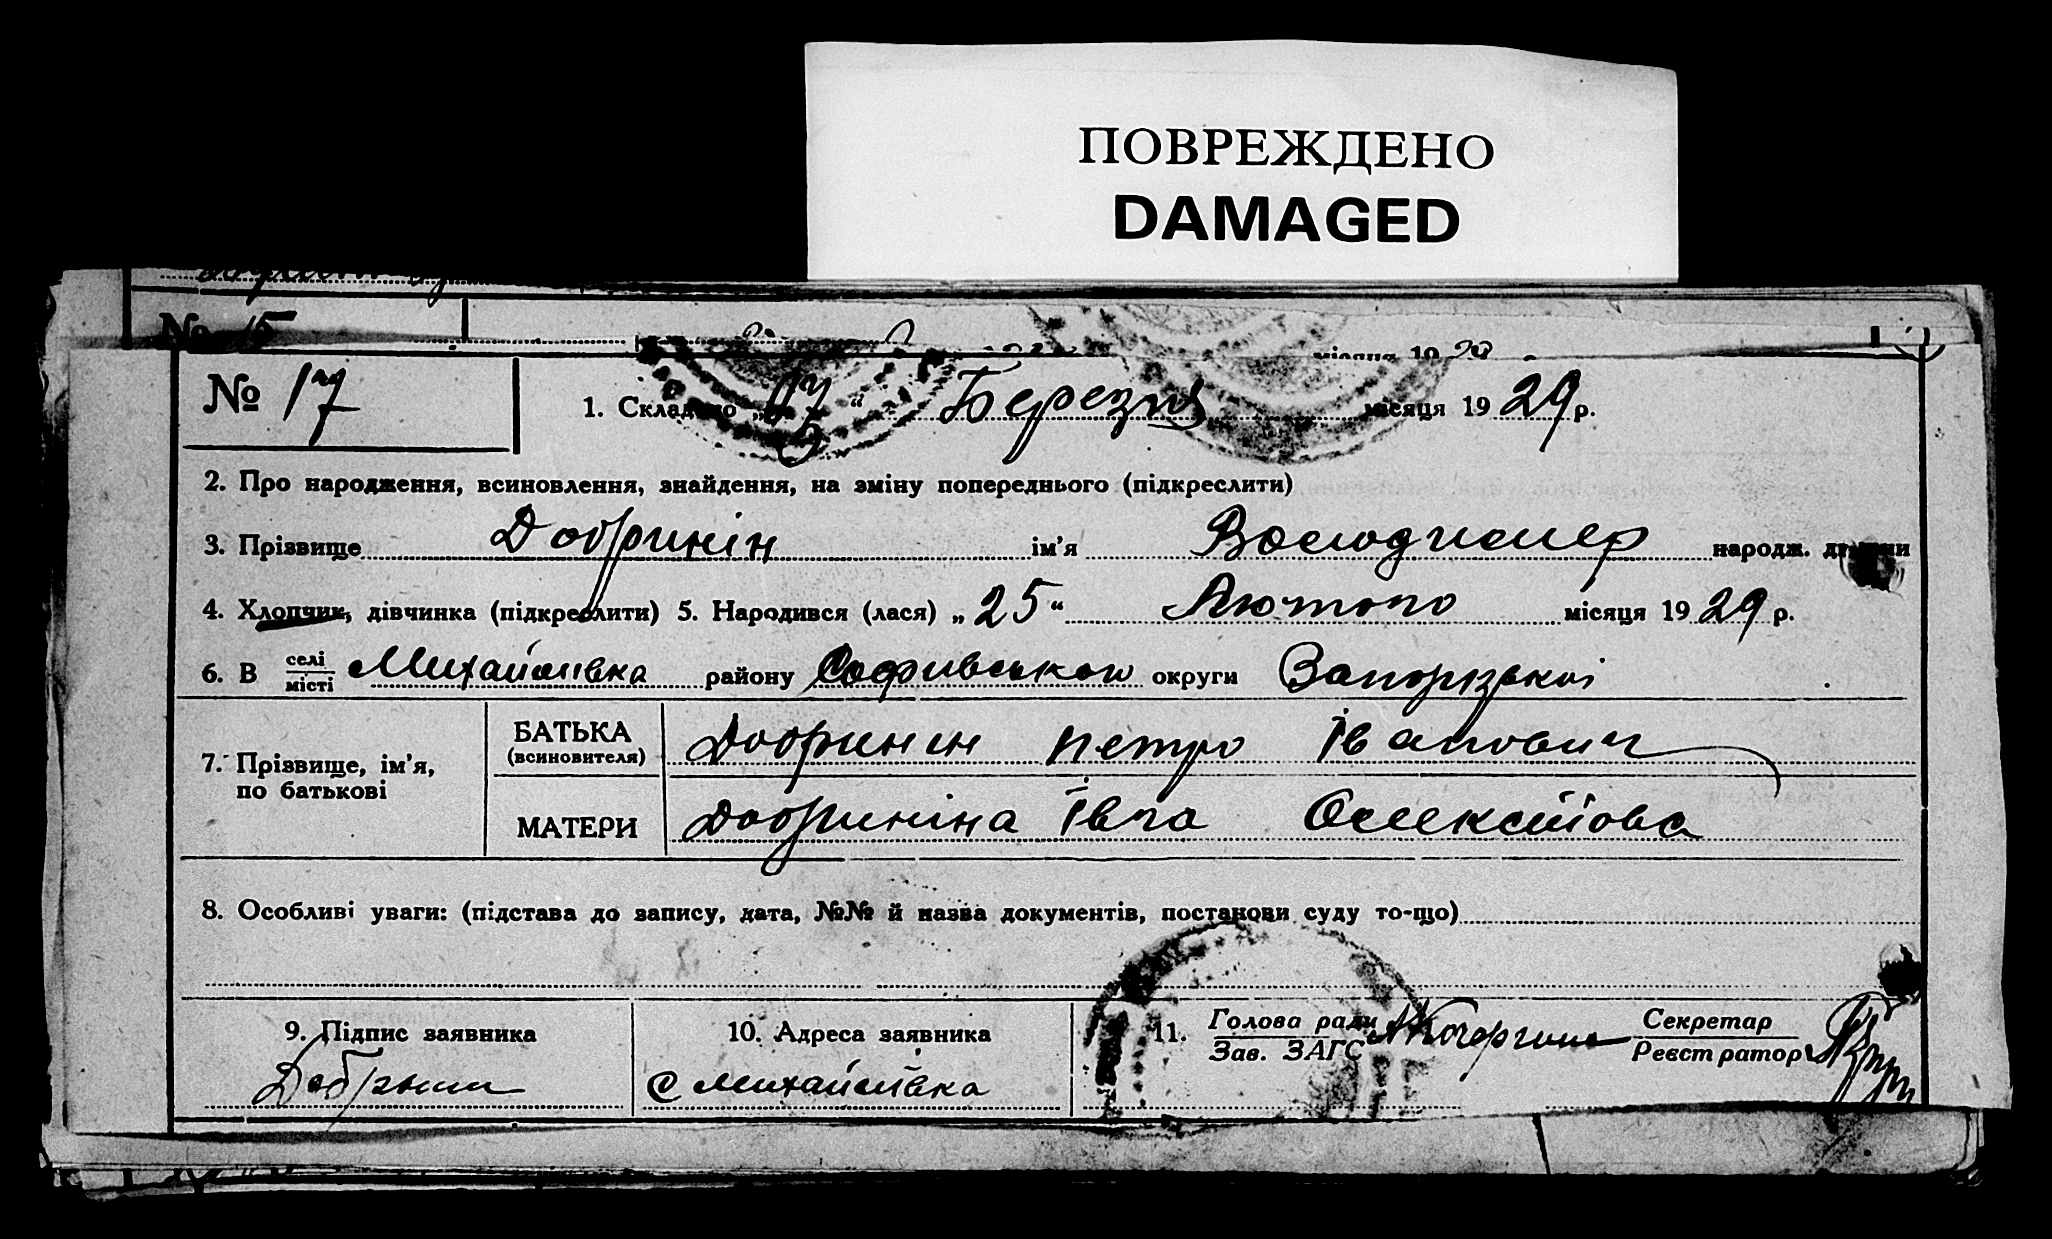 ПОВРЕЖДЕНО
DAMAGED
№ 15
місяця 19
№ 17
1. Складено „ “ Березня місяця 1929 р.
2. Про народження, всиновлення, знайдення, на зміну попереднього (підкреслити)
3. Прізвище Добринін ім’я Володимер народж. дитини
4. Хлопчик, дівчинка (підкреслити) 5. Народився (лася) „25“ Лютого місяця 1929 р.
6. В селі місті Михайлівка району Софивського округи Запорізької
7. Прізвище, ім’я, по батькові
БАТЬКА (всиновителя) Добринин Петро Іванович
МАТЕРИ Добриніна Івга Олексіїова
8. Особливі уваги: (підстава до запису, дата, №№ й назва документів, постанови суду то-що)
9. Підпис заявника
Добрынин
10. Адреса заявника
с Михайлівка
11. Голова ради Зав. ЗАГС
Секретар Реєстратор